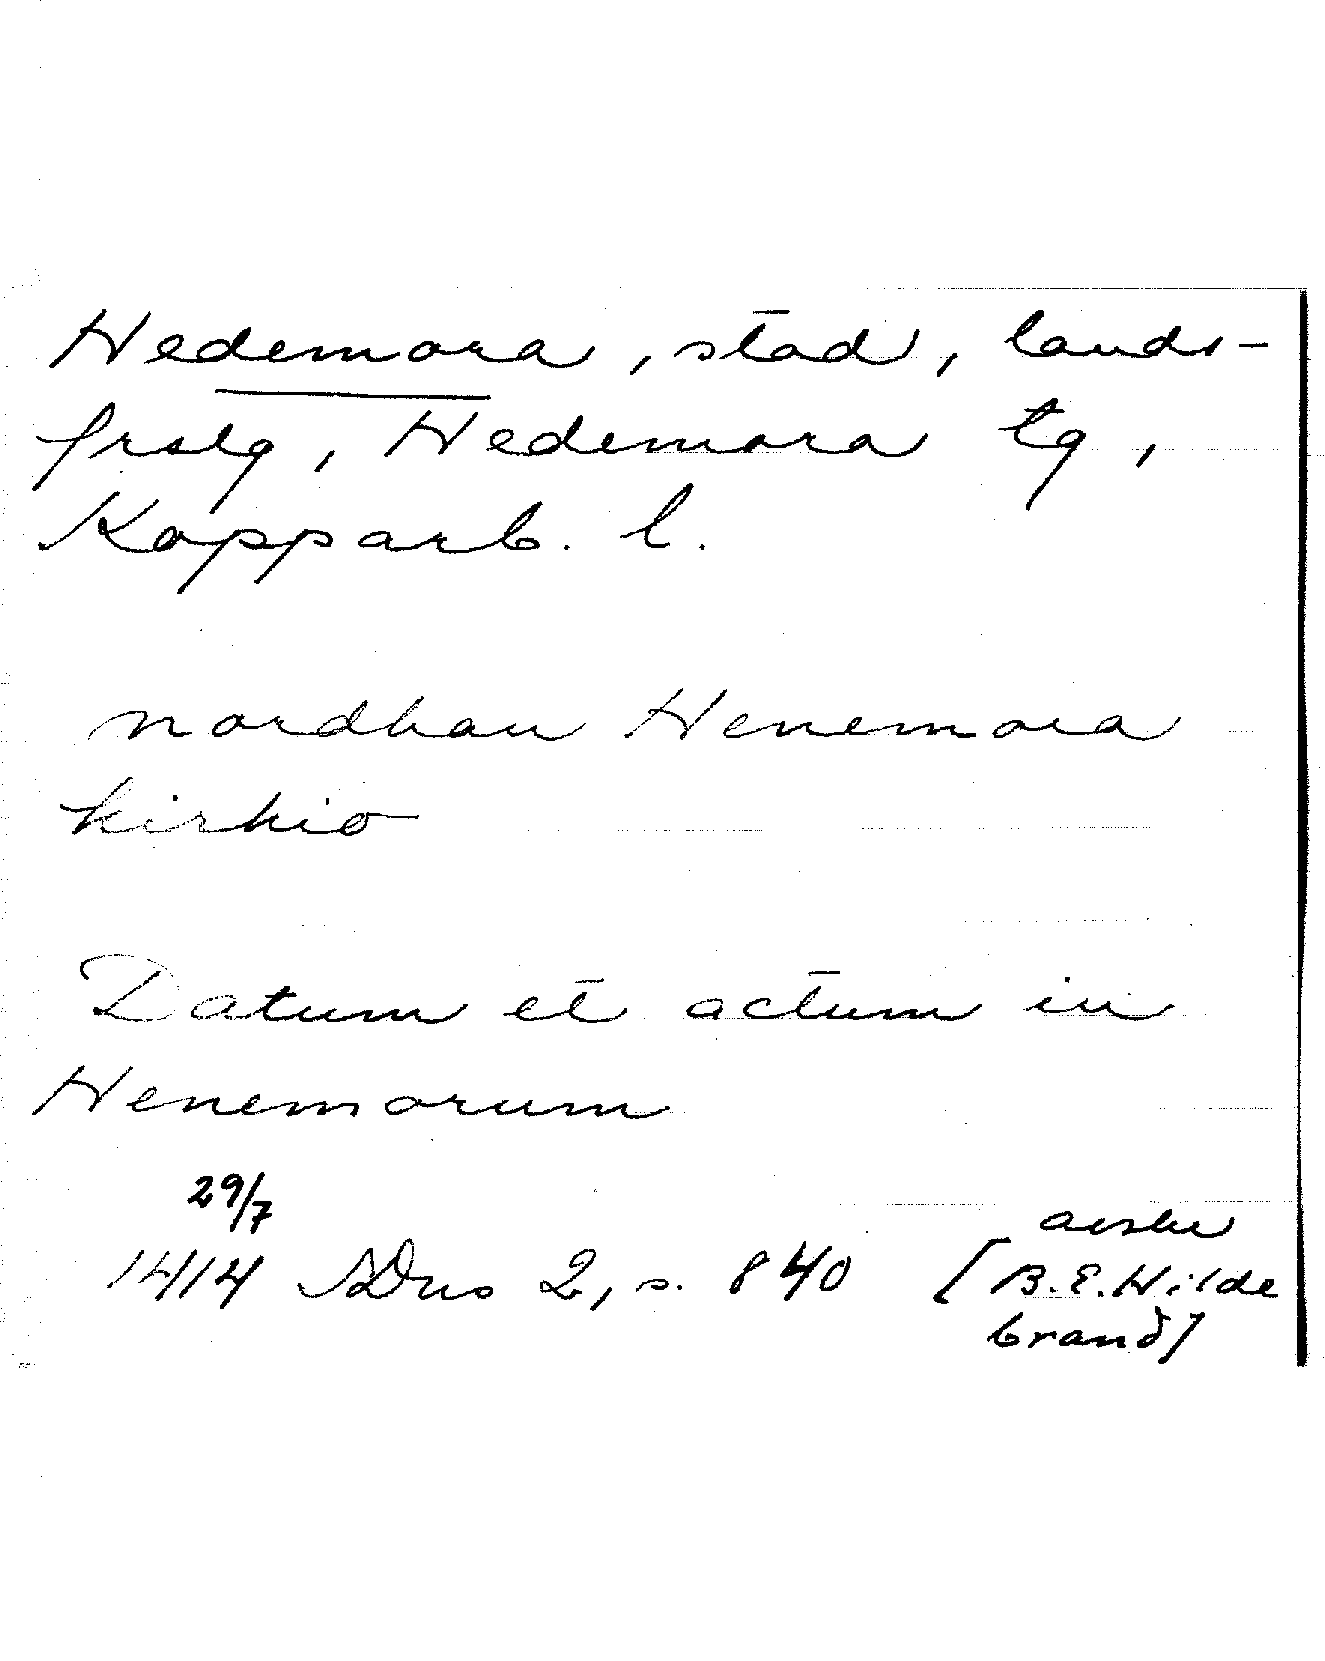 Hedemora, stad, lands-
frslg, Hedemora tg,
Kopparb. l.
nordhan Henemora
kirkio
Datum et actum in
Henemorum
29/7
1414 SDns 2, s. 840 [
B. E. Hilde
brand]